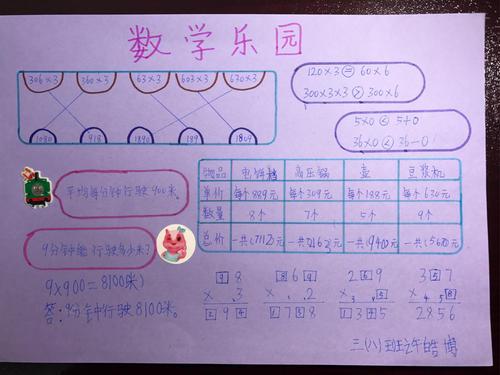 数学乐园
306×3 360×3 63×3 603×3 630×3
1080 918 1890 189 1809
120×3=60×6
300×3×3>300×6
5×0<5+0
36×0<36-0
平均每分钟行驶900米。
9分钟能行驶多少米?
9×900=8100(米)
答:9分钟行驶8100米。
物品 电饼铛 高压锅 壶 豆浆机
单价 每个889元 每个309元 每个188元 每个630元
数量 8个 7个 5个 9个
总价 一共(7112)元 一共(2163)元 一共(940)元 一共(5670)元
98 869 269 357
×3 ×2 ×5 ×8
294 1738 1345 2856
三(八)班